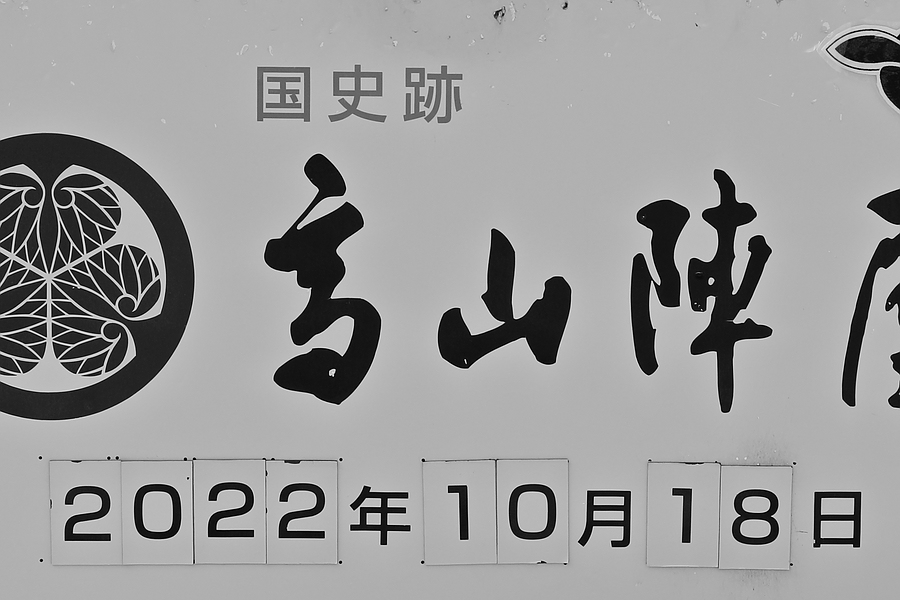 国史跡
高山陣屋
2022年10月18日